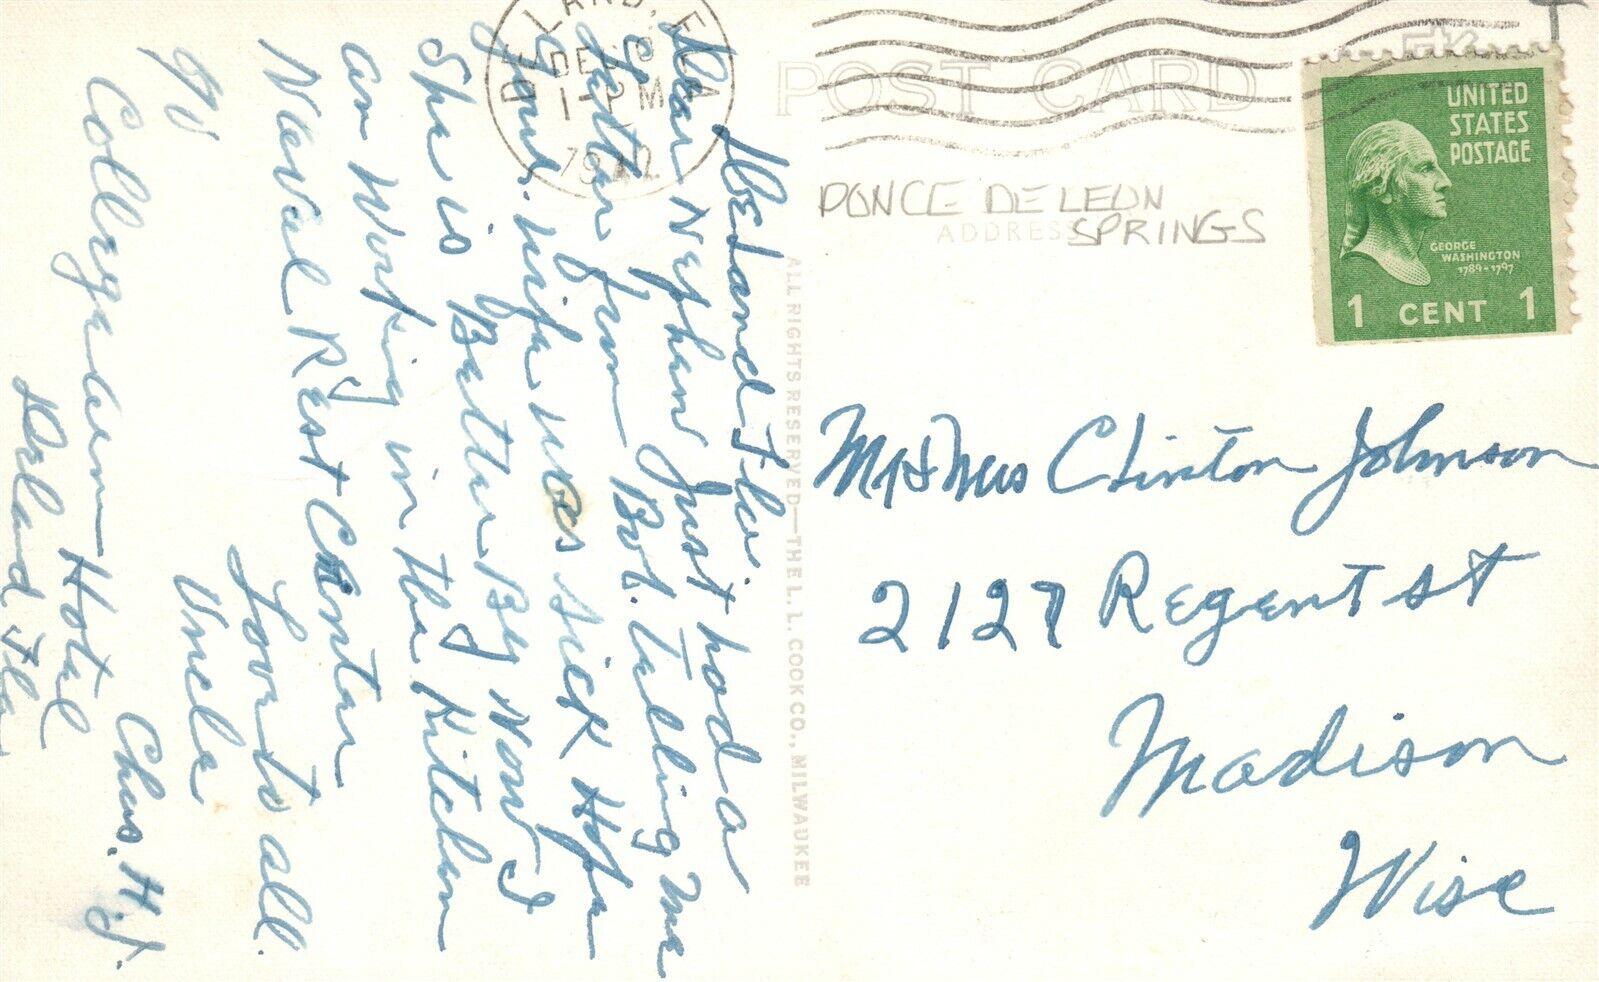 DE LAND, FLA
DEC
1-PM
1942
POST CARD
PONCE DE LEON
SPRINGS
ADDRESS
UNITED
STATES
POSTAGE
GEORGE
WASHINGTON
1789-1797
1 CENT 1
ALL RIGHTS RESERVED—THE L.L. COOK CO., MILWAUKEE
DeLand Fla.
Dear Nephew Just had a
Letter from Bob. Telling me
your wife was sick Hope
She is Better By Now I
am Working in the Kitchen
Naval Rest Center
Love to all.
Uncle
Chas. H. J.
College Hotel
DeLand Fla.
Mr & Mrs Clinton Johnson
2127 Regent St
Madison
Wisc